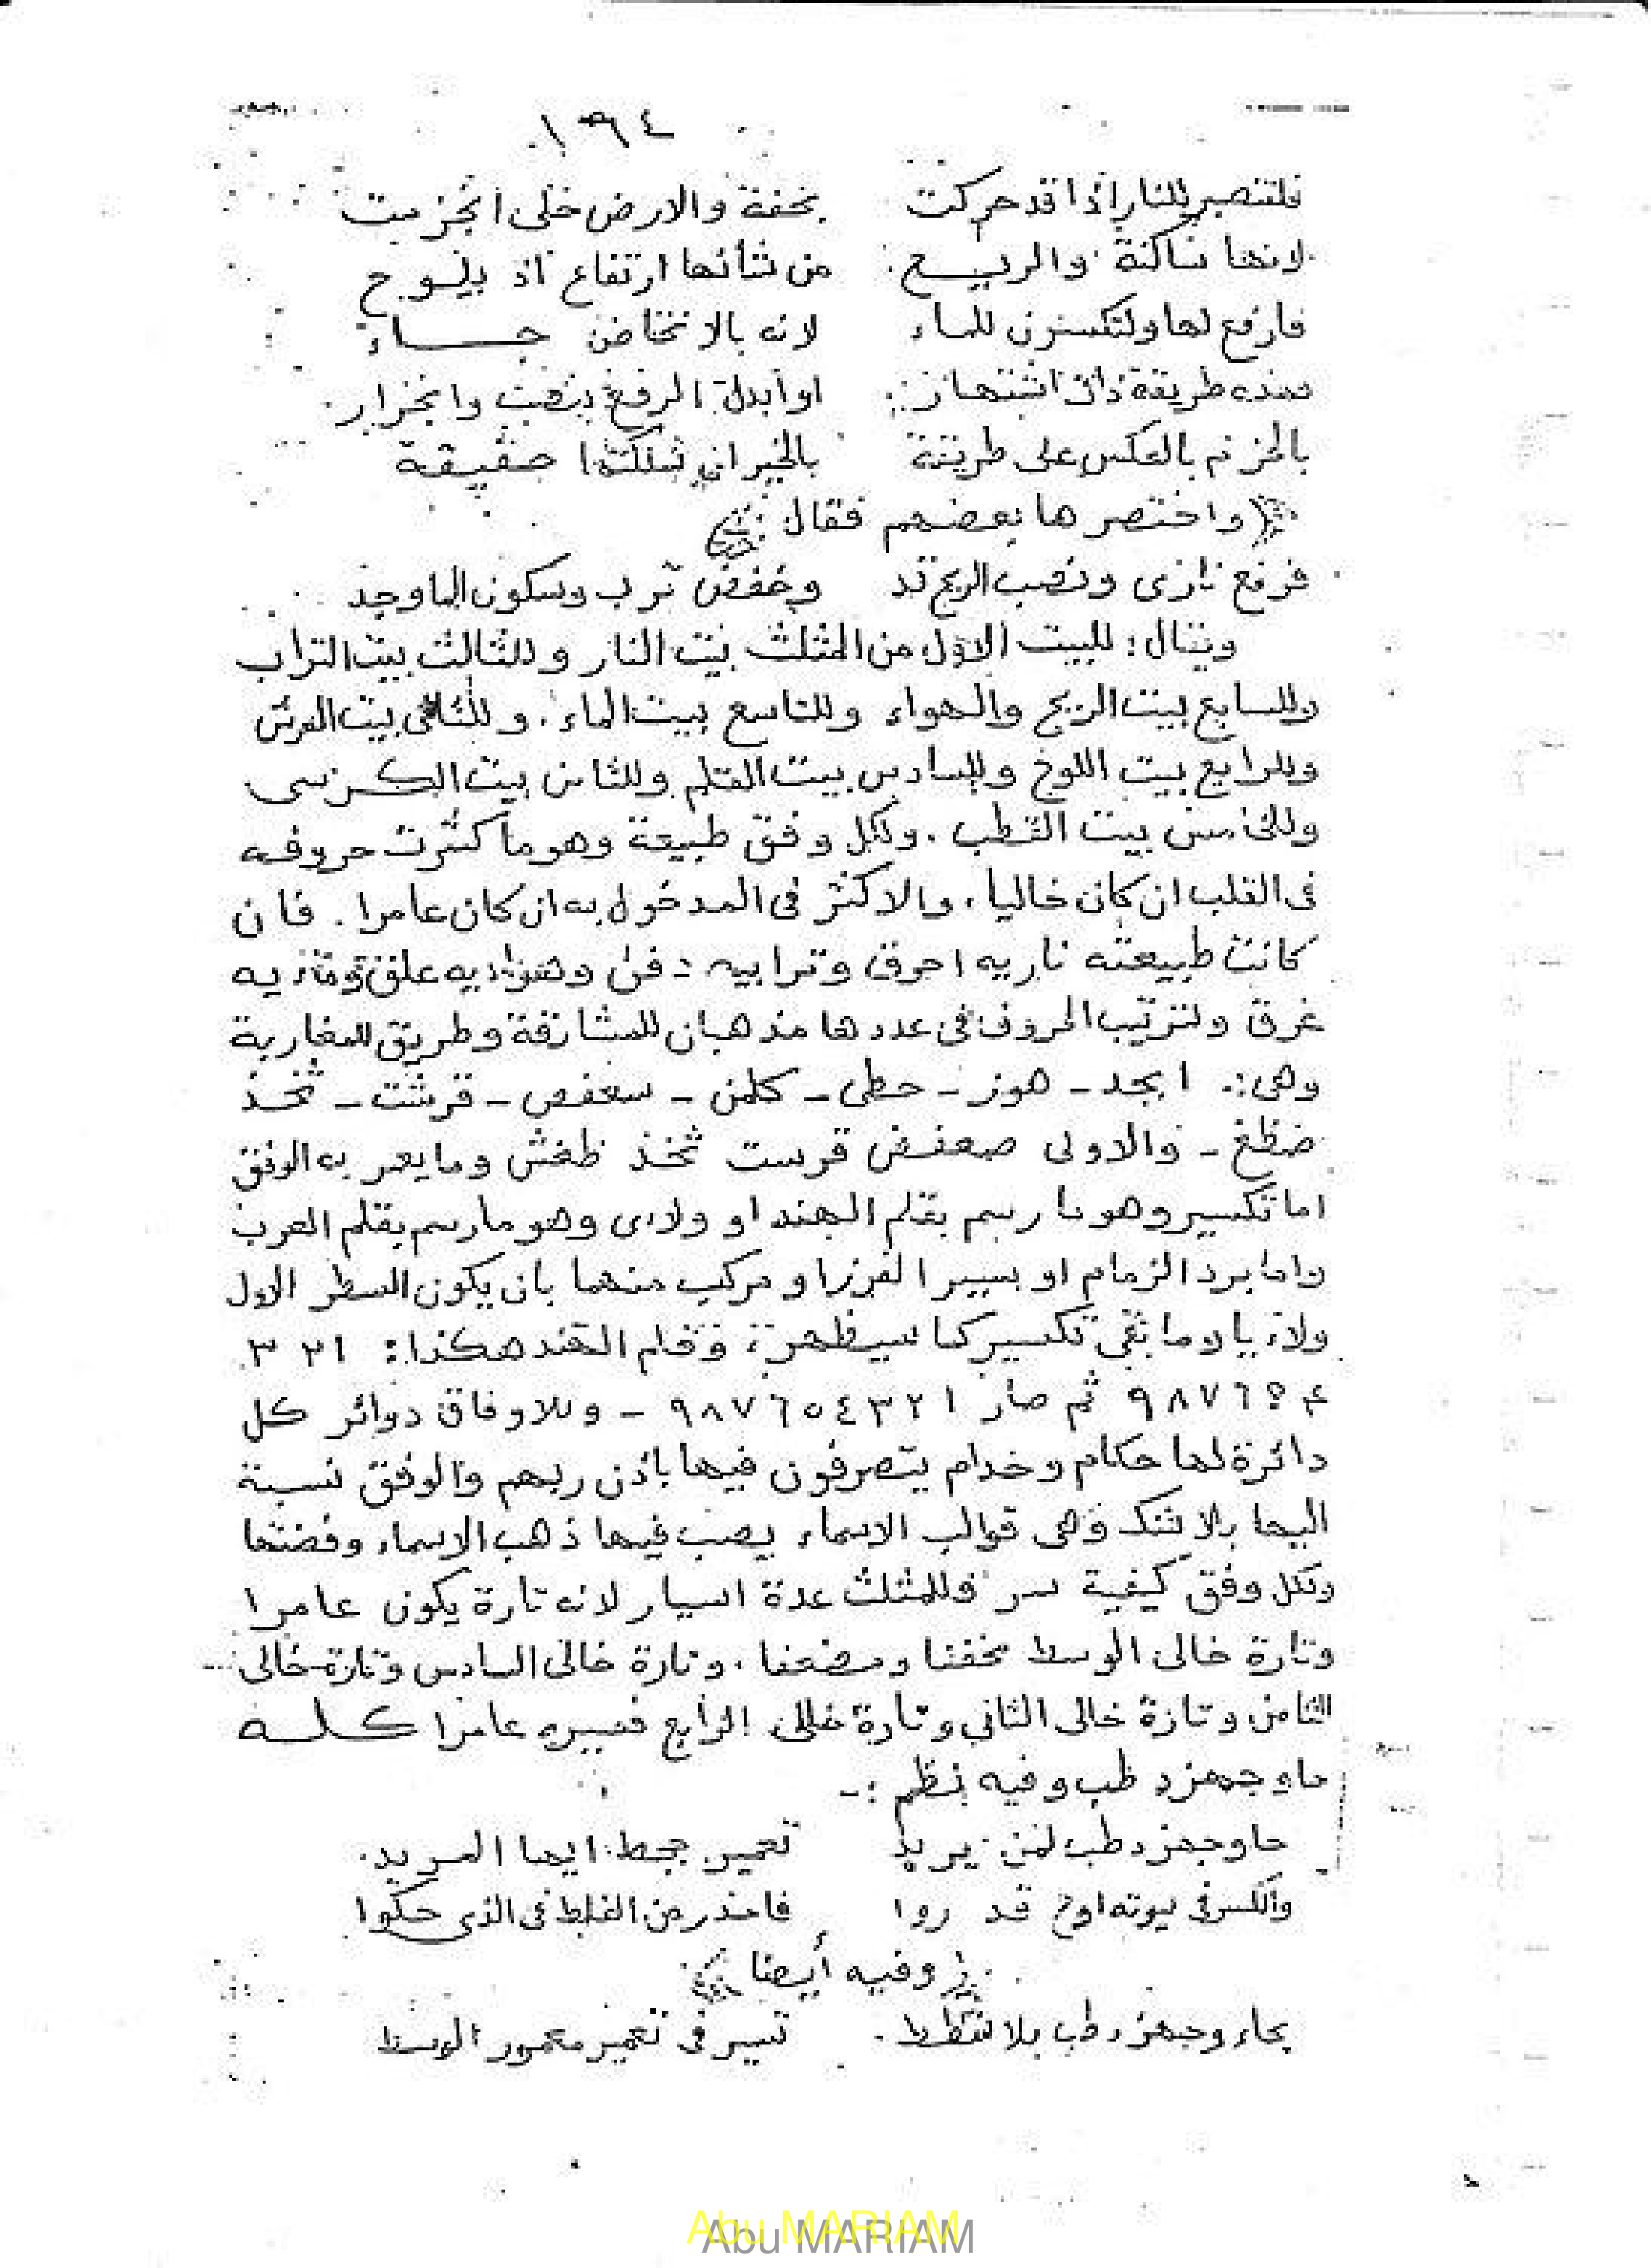 ١٩٤
فلتنصبن للنار اذا قد حركت بخفة والارض خلى انجزمت
لانها ساكنة والريح من شأنها ارتفاع اذ يلوح
فارفع لها ولتكسرن للماء لانه بالانخفاض جاء
فهذه طريقة ذات اشتهار او ابدل الرفع بنصب وانجرار
بالجزم بالعكس على طريقة بالخير ان سلكتها حقيقة
واختصرها بعضهم فقال :
فرفع نارى ونصب الريح قد وخفض ترب وسكون الما وجد
ويقال : للبيت الاول من المثلث بيت النار وللثالث بيت التراب
وللسابع بيت الريح والهواء وللتاسع بيت الماء . وللثانى بيت العرش
وللرابع بيت اللوح وللسادس بيت القلم وللثامن بيت الكرسى
وللخامس بيت القطب . ولكل وفق طبيعة وهو ما كثرت حروفه
فى القلب ان كان خاليا ، والاكثر فى المدخول به ان كان عامرا . فان
كانت طبيعته ناريه احرق وترابيه دفن وهوائيه علق ومائيه
غرق ولترتيب الحروف فى عددها مذهبان للمشارقة وطريق للمغاربة
وهى :. ابجد - هوز - حطى - كلمن - سعفص - قرشت - ثخذ
ضظغ - والاولى صعفض قرست ثخذ ظغش وما يعمر به الوفق
اما تكسير وهو ما رسم بقلم الهند او ولادى وهو ما رسم بقلم العرب
واما برد الزمام او بسير الفرزا و مركب منهما بان يكون السطر الاول
ولاديا وما بقى تكسير كما سيظهر ، وقلم الهند هكذا : ١ ٢ ٣
٤ ٥ ٦ ٧ ٨ ٩ ثم صار ١ ٢ ٣ ٤ ٥ ٦ ٧ ٨ ٩ - وللاوفاق دوائر كل
دائرة لها حكام وخدام يتصرفون فيها باذن ربهم والوفق نسبة
اليها بلا شك وهى قوالب الاسماء يصب فيها ذهب الاسماء وفضتها
ولكل وفق كيفية سر فللمثلث عدة اسيار لانه تارة يكون عامرا
وتارة خالى الوسط مخففا ومضعفا ، وتارة خالى السادس وتارة خالى
الثامن وتارة خالى الثانى وتارة خالى الرابع فسيره عامرا كله
حاوجهزد طب وفيه نظم :-
حاوجهزد طب لمن يريد تعمير جبط ايها المريد .
والكسر فى بيوته اوج قد روا فاحذر من الغلط فى الذى حكوا
وفيه أيضا
بحاء وجهزد طب بلا شطط . تسير فى تعمير معمور الوسط
Abu MARIAM
Abu MARIAM